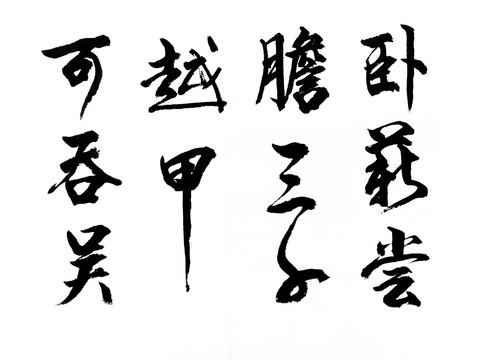 卧薪尝
膽三千
越甲
可吞吴